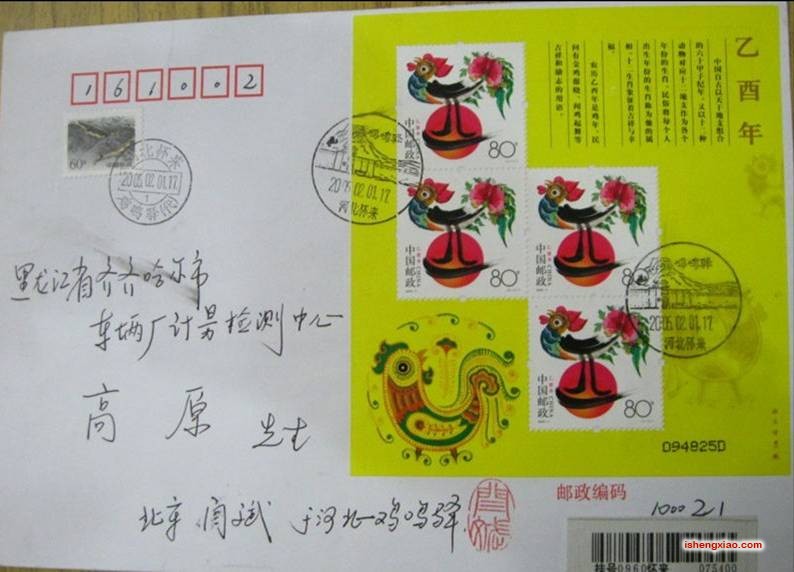 161002
60分
河北怀来
2005.02.01.17
1
鸡鸣驿(代)
鸡鸣驿
2005.02.01.17
河北怀来
乙酉年
中国自古以天干地支组合
的六十甲子纪年，又以十二种
动物对应十二地支作为各个
年份的生肖。民俗将每个人
出生年份的生肖称为他的属
相，十二生肖象征着吉祥与幸
福。
农历乙酉年是鸡年，民
间有金鸡报晓、闻鸡起舞等
吉祥和励志的用语。
乙酉年
中国邮政
CHINA
80分
乙酉年
中国邮政
CHINA
80分
乙酉年
中国邮政
CHINA
80
鸡鸣驿
2005.02.01.17
河北怀来
乙酉年
中国邮政
CHINA
80分
094825D
黑龙江省齐齐哈尔市
车辆厂计量检测中心
高原 先生
北京 闫文斌 于河北鸡鸣驿
邮政编码
100021
挂号0960怀来 075400
ishengxiao.com